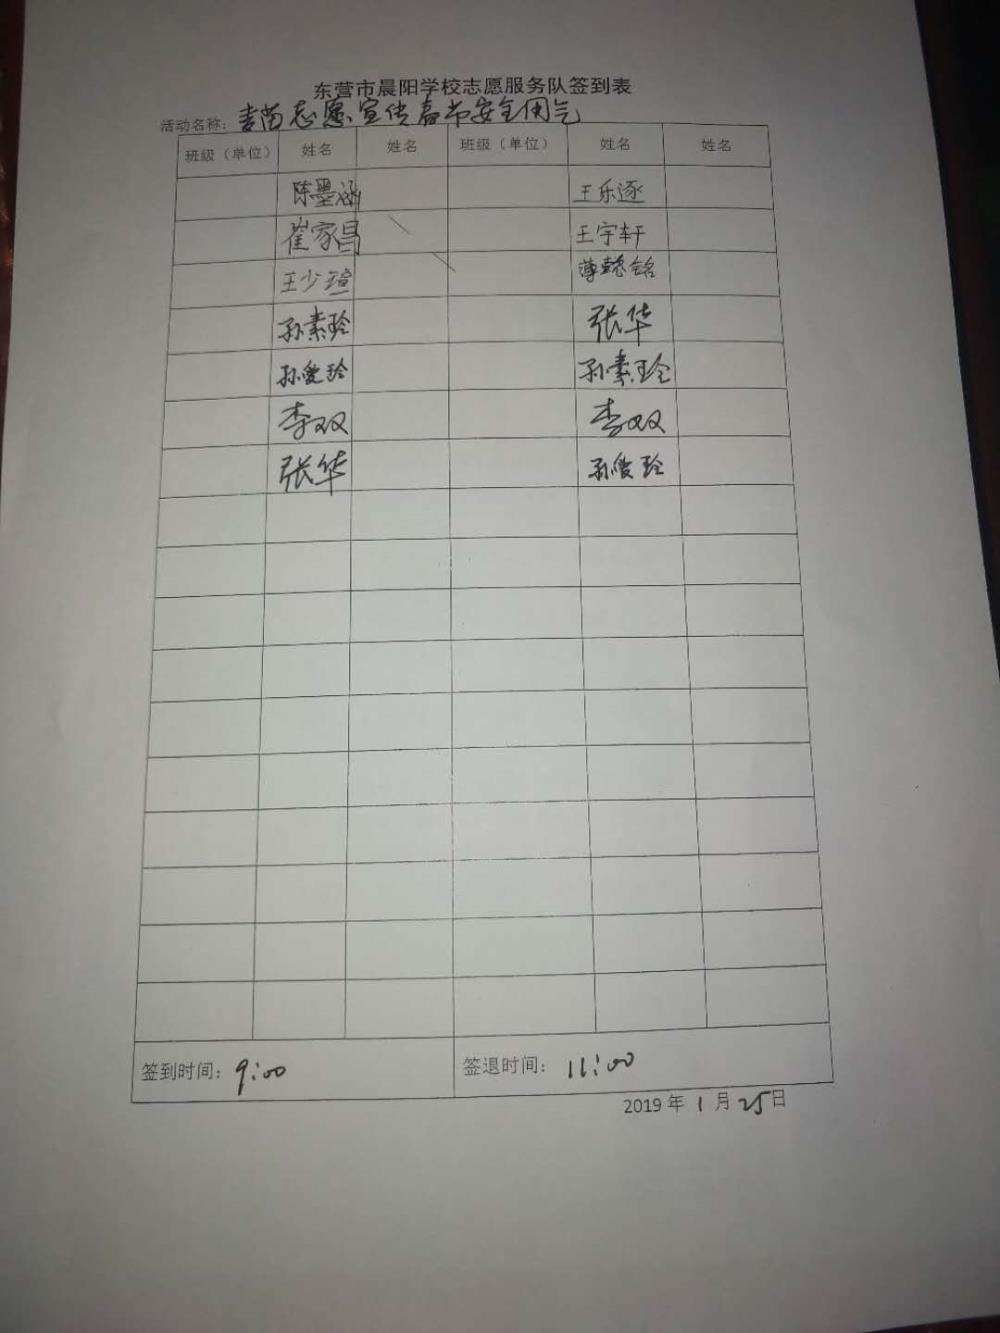 东营市晨阳学校志愿服务队签到表
活动名称：麦苗志愿宣传春节安全用气
班级（单位） 姓名 姓名 班级（单位） 姓名 姓名
陈墨涵 王乐逐
崔家昌 王宇轩
王少瑄 薄懿铭
孙素玲 张华
孙爱玲 孙素玲
李双 李双
张华 孙爱玲
签到时间：9:00 签退时间：11:00
2019年1月25日